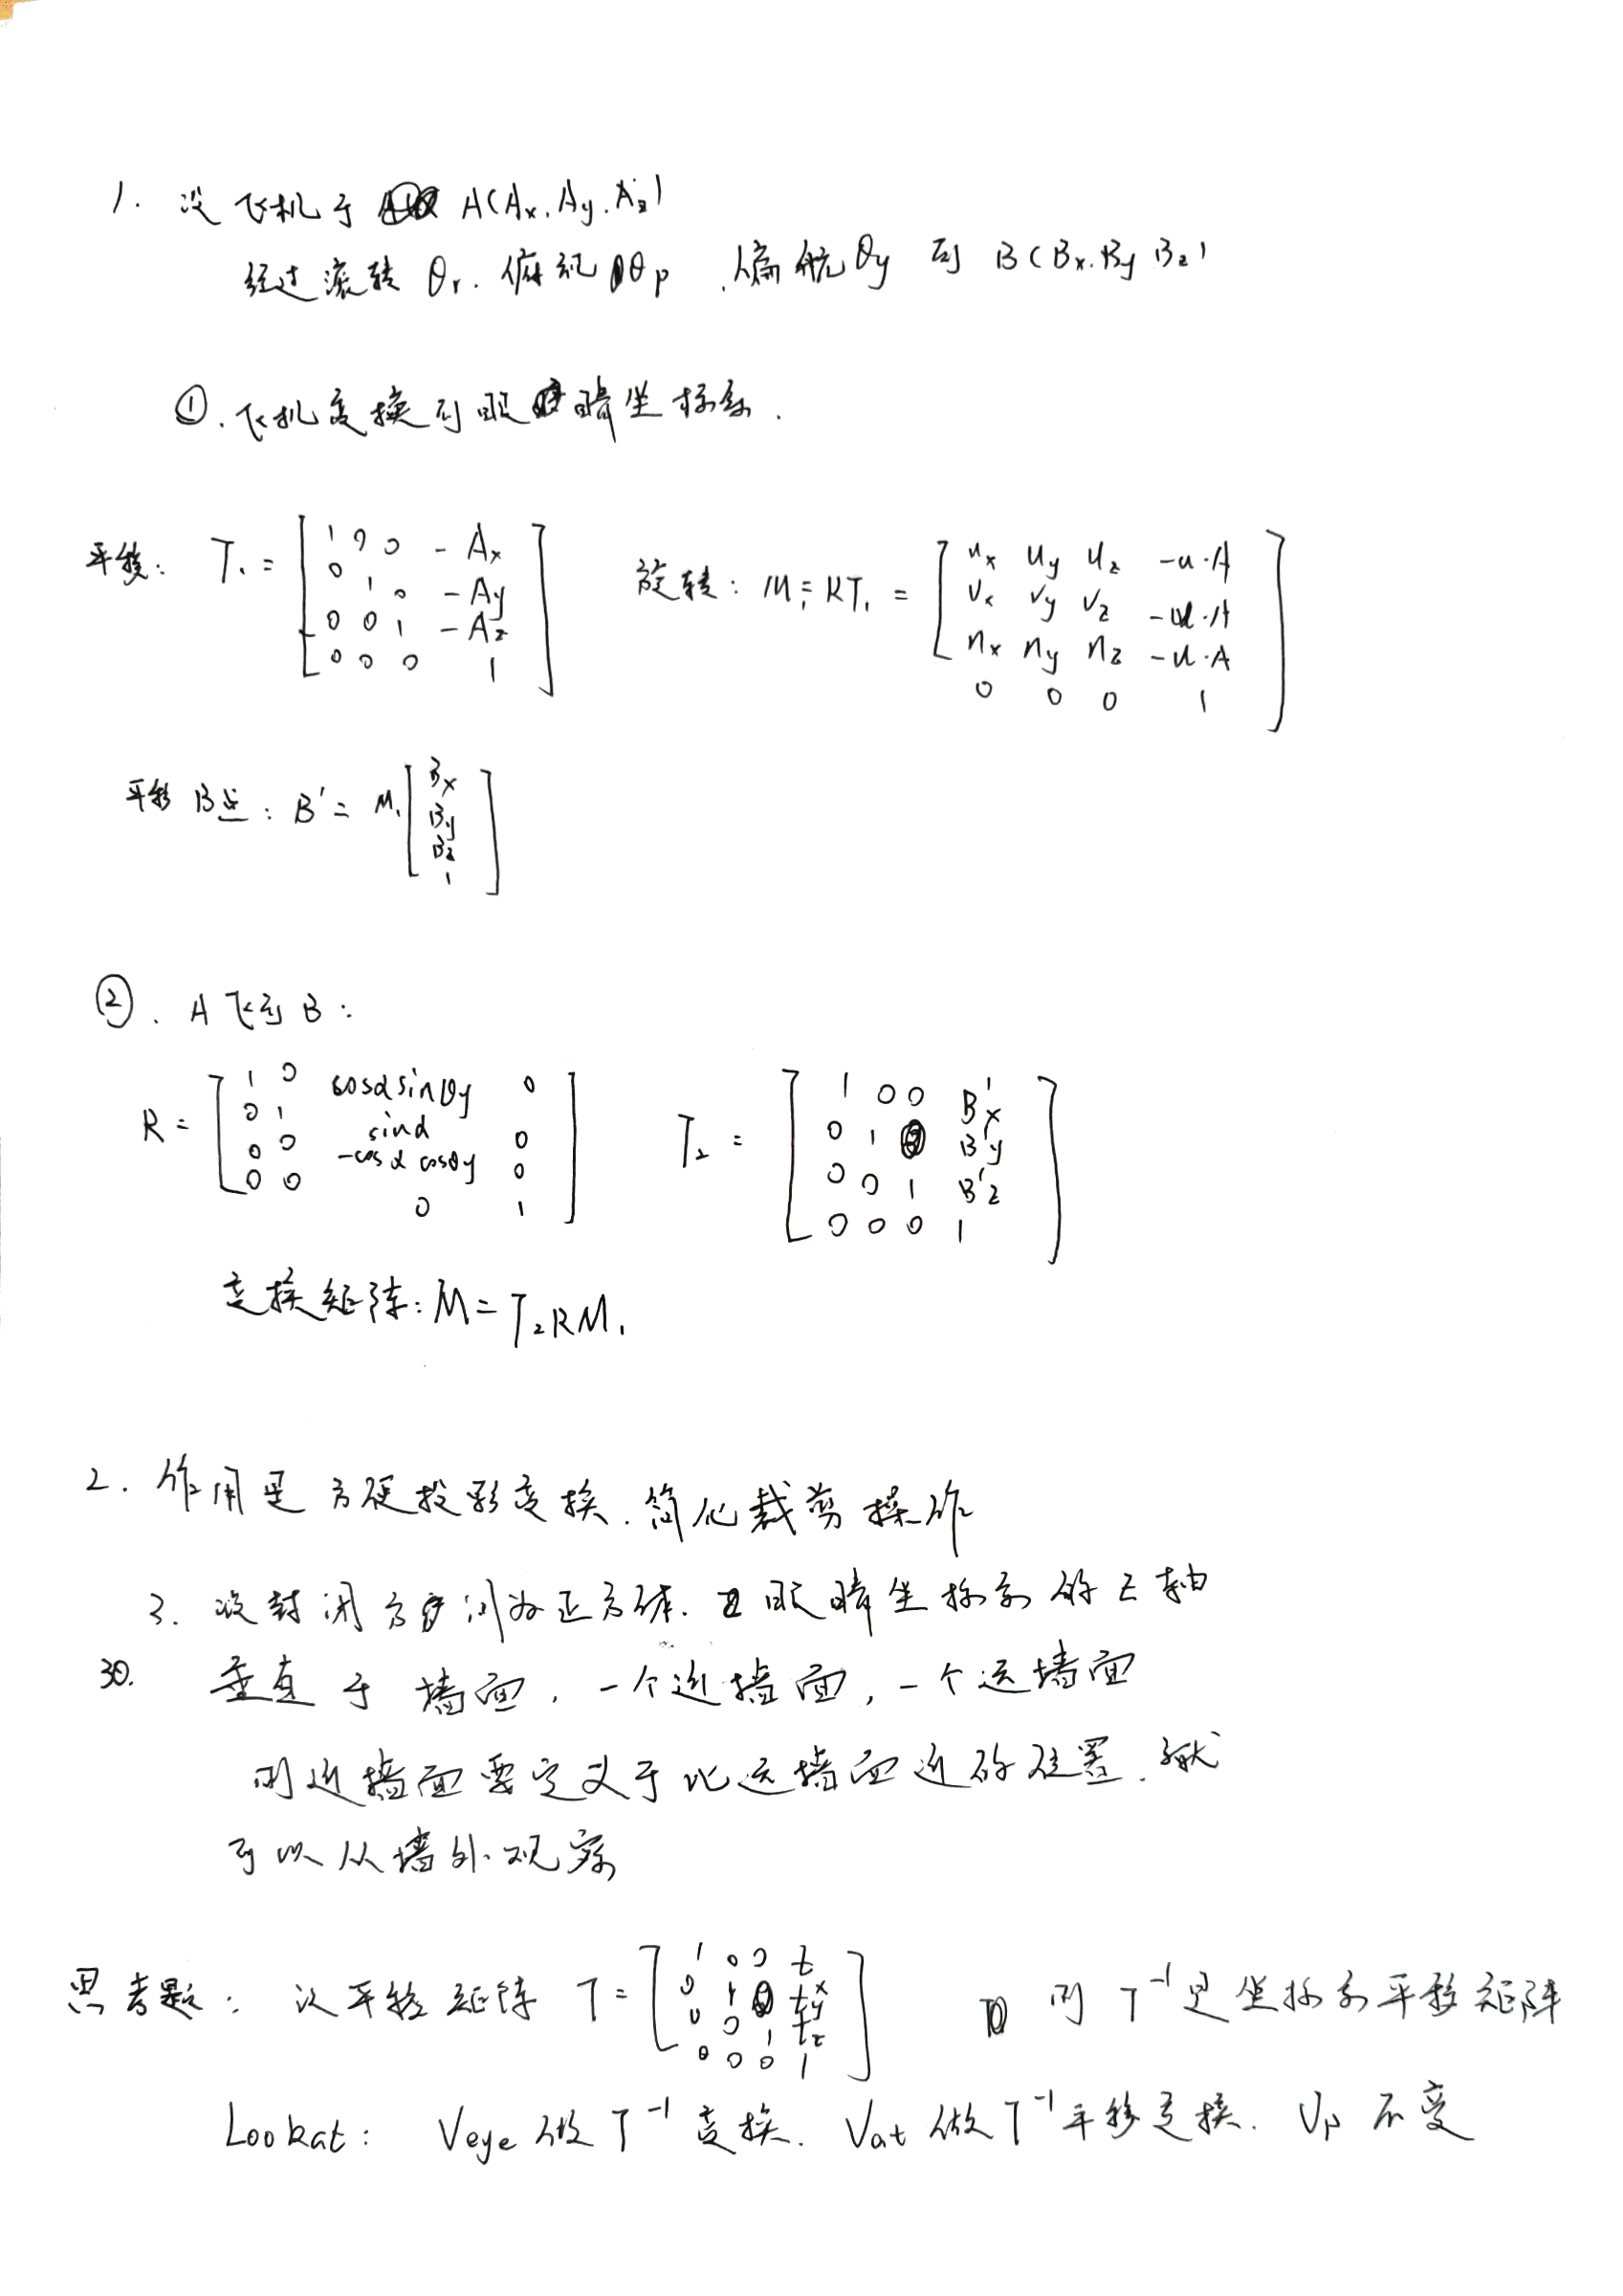 1. 设飞机于 A(Ax, Ay, Az)
经过滚转 θr. 俯仰 θp, 偏航 θy 到 B(Bx. By Bz)
①. 飞机变换到眼睛坐标系.
平移: T₁ = [1 0 0 -Ax; 0 1 0 -Ay; 0 0 1 -Az; 0 0 0 1] 旋转: M₁ = RT₁ = [ux uy uz -u·A; vx vy vz -u·A; nx ny nz -u·A; 0 0 0 1]
平移 B点: B' = M₁ [Bx; By; Bz; 1]
②. A飞到B:
R = [1 0 cosαsinθy 0; 0 1 sinα 0; 0 0 -cosα cosθy 0; 0 0 0 1] T₂ = [1 0 0 B'x; 0 1 0 B'y; 0 0 1 B'z; 0 0 0 1]
变换矩阵: M = T₂RM₁
2. 作用是方便投影变换. 简化裁剪操作
3. 设封闭房间为正方体. 且眼睛坐标系的Z轴
30. 垂直于墙面, 一个近墙面, 一个远墙面
则近墙面要定义于比远墙面近的位置. 就
可以从墙外观察
思考题: 设平移矩阵 T = [1 0 0 tx; 0 1 0 ty; 0 0 1 tz; 0 0 0 1] 则 T⁻¹是坐标系平移矩阵
Lookat: Veye 做 T⁻¹ 变换. Vat 做 T⁻¹ 平移变换. Up 不变